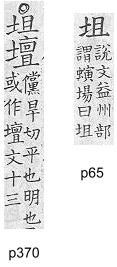 坦壇
儻旱切平也明也
或作壇文十三
p370
坥
說文益州部
謂螾場曰坥
p65